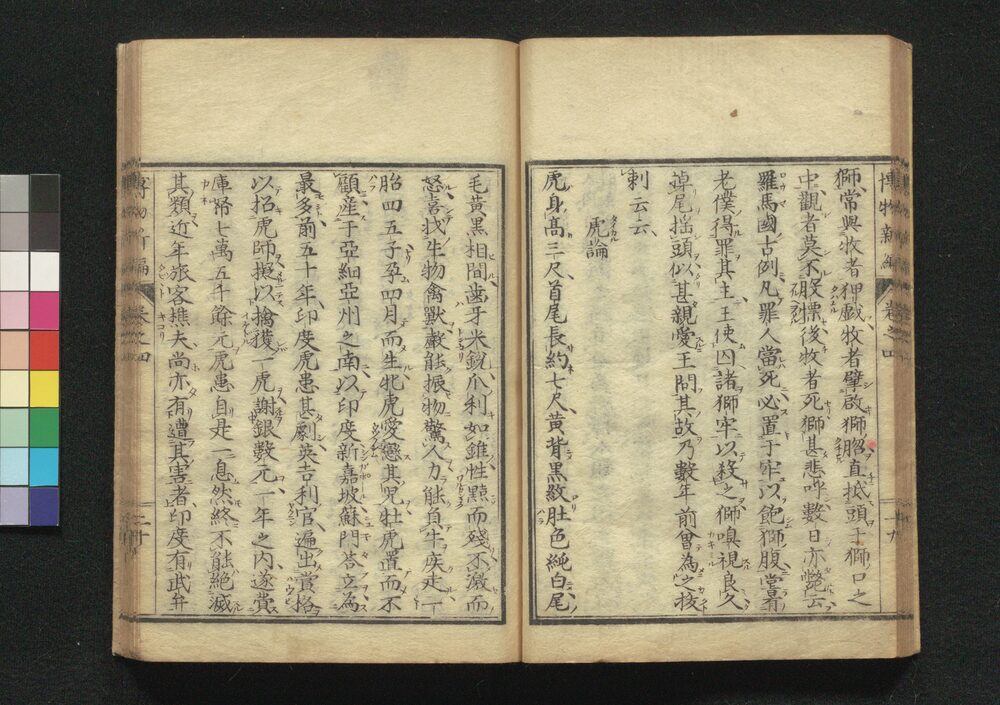 博物新編 卷之四 十九
獅、常與牧者狎戲牧者擘啟獅腭直抵頭于獅口之
中觀者莫不股慄後牧者死獅甚悲呌數日亦斃云
羅馬國古例凡罪人當死必置于牢以飽獅腹嘗有
老僕得罪其主、王使囚諸獅牢以殺之獅嗅視良久
掉尾揺頭似甚親愛王問其故乃數年前曾為之拔
刺云云、
虎論
虎身高三尺首尾長約七尺黄背黒紋肚色純白尾
毛黄黒相間歯牙米鋭爪利如錐性黠而殘不激而
怒喜找生物禽獸嚴能振物驚人力能負牛疾走一
胎四五子孕四月而生牝虎愛戀其兒牡虎置而不
顧産于亞細亞州之南以印度新嘉坡蘇門答立為
最多前五十年、印度虎患甚劇英吉利官遍出賞格
以招虎師擬以擒獲一虎謝銀數元一年之内遂費
庫帑七萬五千餘元虎患自是一息然終不能絶滅
其類近年旅客樵夫尚亦有遭其害者印度有武弁
博物新編 卷之四 二十